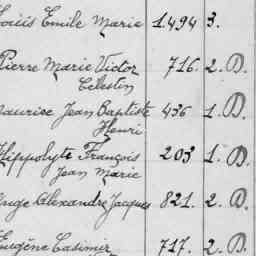 Louis Emile Marie 1.494 3.
Pierre Marie Victor 716. 2. D.
Célestin
Maurice Jean Baptiste 436 1. D.
Henri
Hippolyte François 203 1. D.
Jean Marie
Ange Alexandre Jacques 821. 2. D.
Eugène Casimir 717. 2. D.